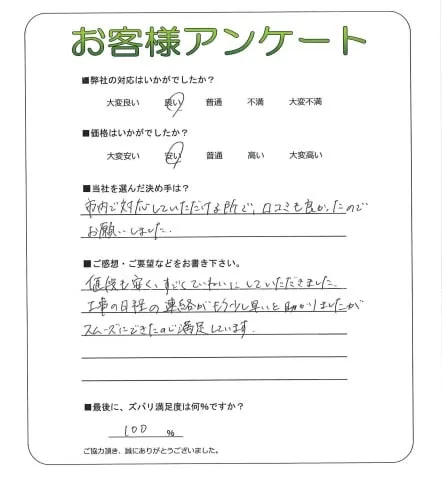 お客様アンケート
■弊社の対応はいかがでしたか？
大変良い 良い 普通 不満 大変不満
■価格はいかがでしたか？
大変安い 安い 普通 高い 大変高い
■当社を選んだ決め手は？
市内で対応していただける所で、口コミも良かったので
お願いしました。
■ご感想・ご要望などをお書き下さい。
値段も安く、すごくていねいにしていただきました。
工事の日程の連絡がもう少し早いと助かりましたが
スムーズにできたので満足しています。
■最後に、ズバリ満足度は何％ですか？
100 %
ご協力頂き、誠にありがとうございました。